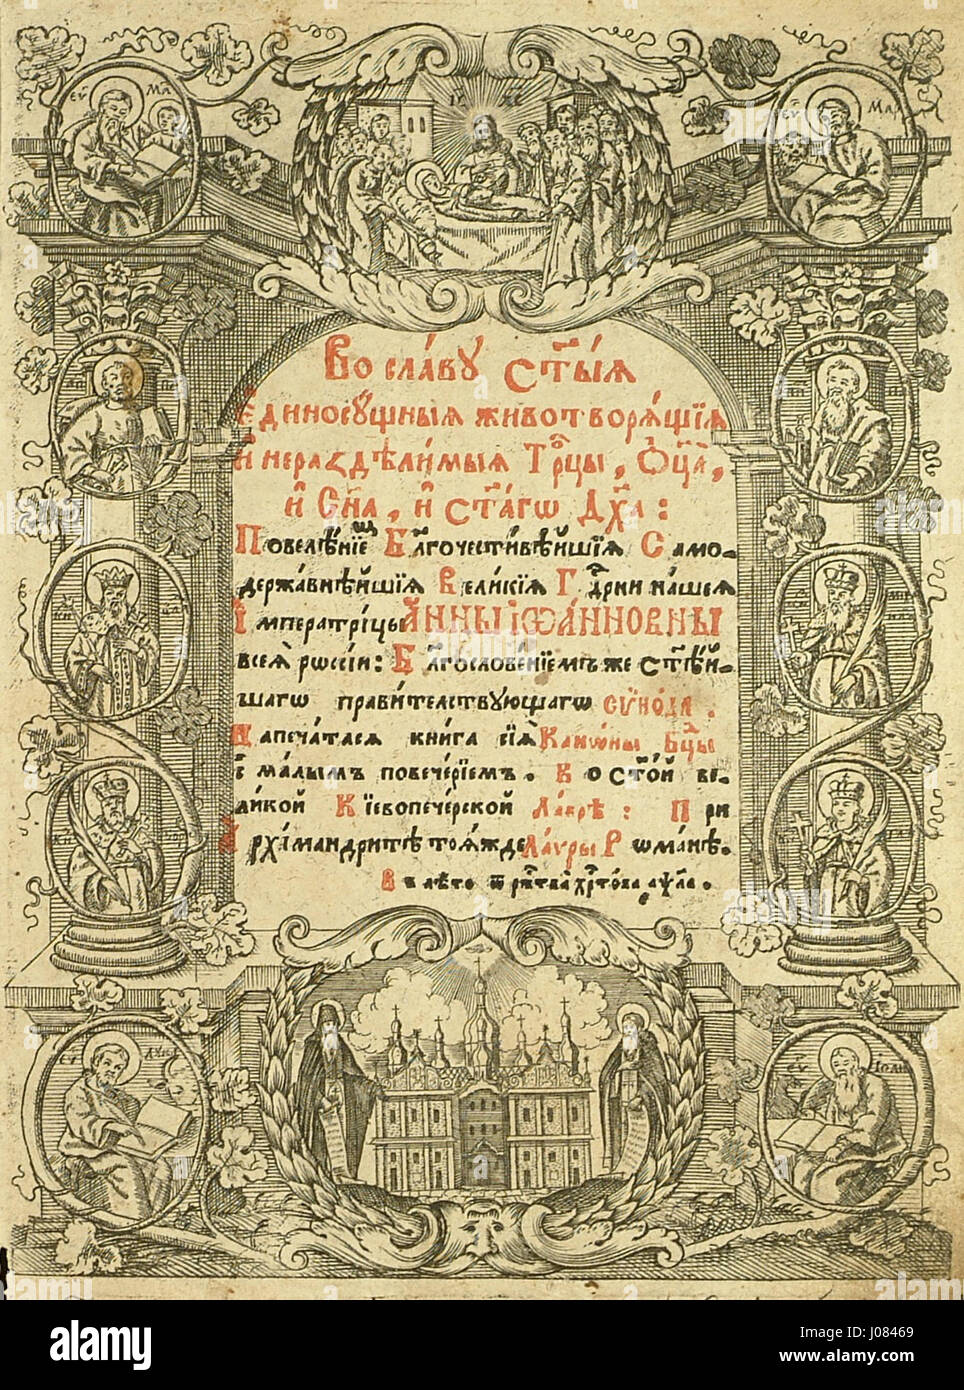 ЕѴ МА
ІС ХС
ЕѴ МАР
Во сла́вꙋ Ст҃ы́ѧ
Є҆диносꙋ́щныѧ животворѧ́щїѧ
И҆ нераздѣли́мыѧ Трⷪ҇цы, Ѻ҆ц҃а̀,
и҆ Сн҃а, и҆ ст҃а́гѡ Дх҃а:
Повелѣ́нїемъ Бл҃гочести́вѣйшїѧ Само-
держа́внѣйшїѧ Вели́кїѧ Гдⷭ҇рни на́шеѧ
І҆мператри́цы А҆́ННЫ ІѠА́ННОВНЫ
всеѧ̀ рѡссі́и: Бл҃гослове́нїемъ же ст҃ѣ́й-
шагѡ прави́телствꙋющагѡ сѷно́да.
Напеча́тасѧ кни́га сїѧ̀ Канѡ́ны Бцⷣы
с̾ ма́лымъ повече́рїемъ. в̾ о ст҃о́й ве-
ли́кой Кїевопече́рской ла́врѣ: При
А҆рхімандри́тѣ тоѧ́жде ла́ѵры Рѡма́нѣ.
В̾ лѣ́то ѿ ржⷭ҇тва̀ хрⷭ҇то́ва
ЕѴ ЛꙊКА
ЕѴ ІОАН
alamy
Image ID: J08469
www.alamy.com